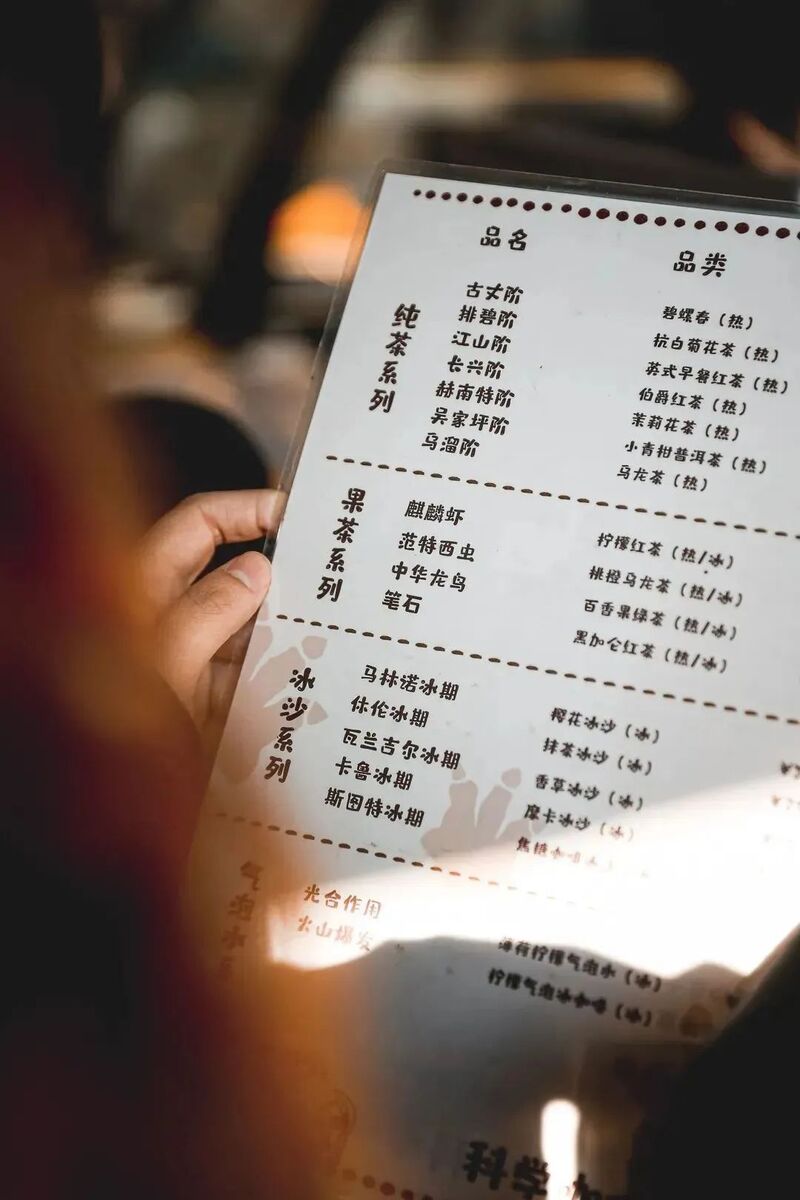 品名 品类
纯茶系列
古丈阶 碧螺春（热）
排碧阶 杭白菊花茶（热）
江山阶 英式早餐红茶（热）
长兴阶 伯爵红茶（热）
赫南特阶 茉莉花茶（热）
吴家坪阶 小青柑普洱茶（热）
乌溜阶 乌龙茶（热）
果茶系列
麒麟虾 柠檬红茶（热/冰）
范特西虫 桃橙乌龙茶（热/冰）
中华龙鸟 百香果绿茶（热/冰）
笔石 黑加仑红茶（热/冰）
冰沙系列
马林诺冰期 樱花冰沙（冰）
休伦冰期 抹茶冰沙（冰）
瓦兰吉尔冰期 香草冰沙（冰）
卡鲁冰期 摩卡冰沙（冰）
斯图特冰期 焦糖咖啡
气泡水
光合作用 薄荷柠檬气泡水（冰）
火山爆发 柠檬气泡冰咖啡（冰）
科学